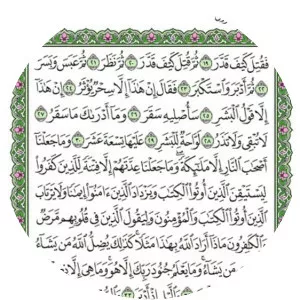 فَقُتِلَ كَيْفَ قَدَّرَ ١٩ ثُمَّ قُتِلَ كَيْفَ قَدَّرَ ٢٠ ثُمَّ نَظَرَ ٢١ ثُمَّ عَبَسَ وَبَسَرَ
٢٢ ثُمَّ أَدْبَرَ وَٱسْتَكْبَرَ ٢٣ فَقَالَ إِنْ هَٰذَآ إِلَّا سِحْرٌ يُؤْثَرُ ٢٤ إِنْ هَٰذَآ
إِلَّا قَوْلُ ٱلْبَشَرِ ٢٥ سَأُصْلِيهِ سَقَرَ ٢٦ وَمَآ أَدْرَىٰكَ مَا سَقَرُ ٢٧
لَا تُبْقِى وَلَا تَذَرُ ٢٨ لَوَّاحَةٌ لِّلْبَشَرِ ٢٩ عَلَيْهَا تِسْعَةَ عَشَرَ ٣٠ وَمَا جَعَلْنَآ
أَصْحَٰبَ ٱلنَّارِ إِلَّا مَلَٰٓئِكَةً وَمَا جَعَلْنَا عِدَّتَهُمْ إِلَّا فِتْنَةً لِّلَّذِينَ كَفَرُوا۟
لِيَسْتَيْقِنَ ٱلَّذِينَ أُوتُوا۟ ٱلْكِتَٰبَ وَيَزْدَادَ ٱلَّذِينَ ءَامَنُوٓا۟ إِيمَٰنًا وَلَا يَرْتَابَ
ٱلَّذِينَ أُوتُوا۟ ٱلْكِتَٰبَ وَٱلْمُؤْمِنُونَ وَلِيَقُولَ ٱلَّذِينَ فِى قُلُوبِهِم مَّرَضٌ
وَٱلْكَٰفِرُونَ مَاذَآ أَرَادَ ٱللَّهُ بِهَٰذَا مَثَلًا كَذَٰلِكَ يُضِلُّ ٱللَّهُ مَن يَشَآءُ
مَن يَشَآءُ وَمَا يَعْلَمُ جُنُودَ رَبِّكَ إِلَّا هُوَ وَمَا هِىَ إِلَّا